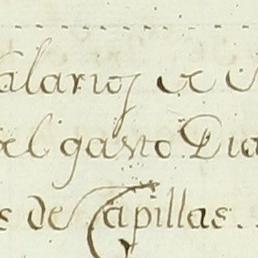 alarios de
el gasto Dia
s de Capillas..